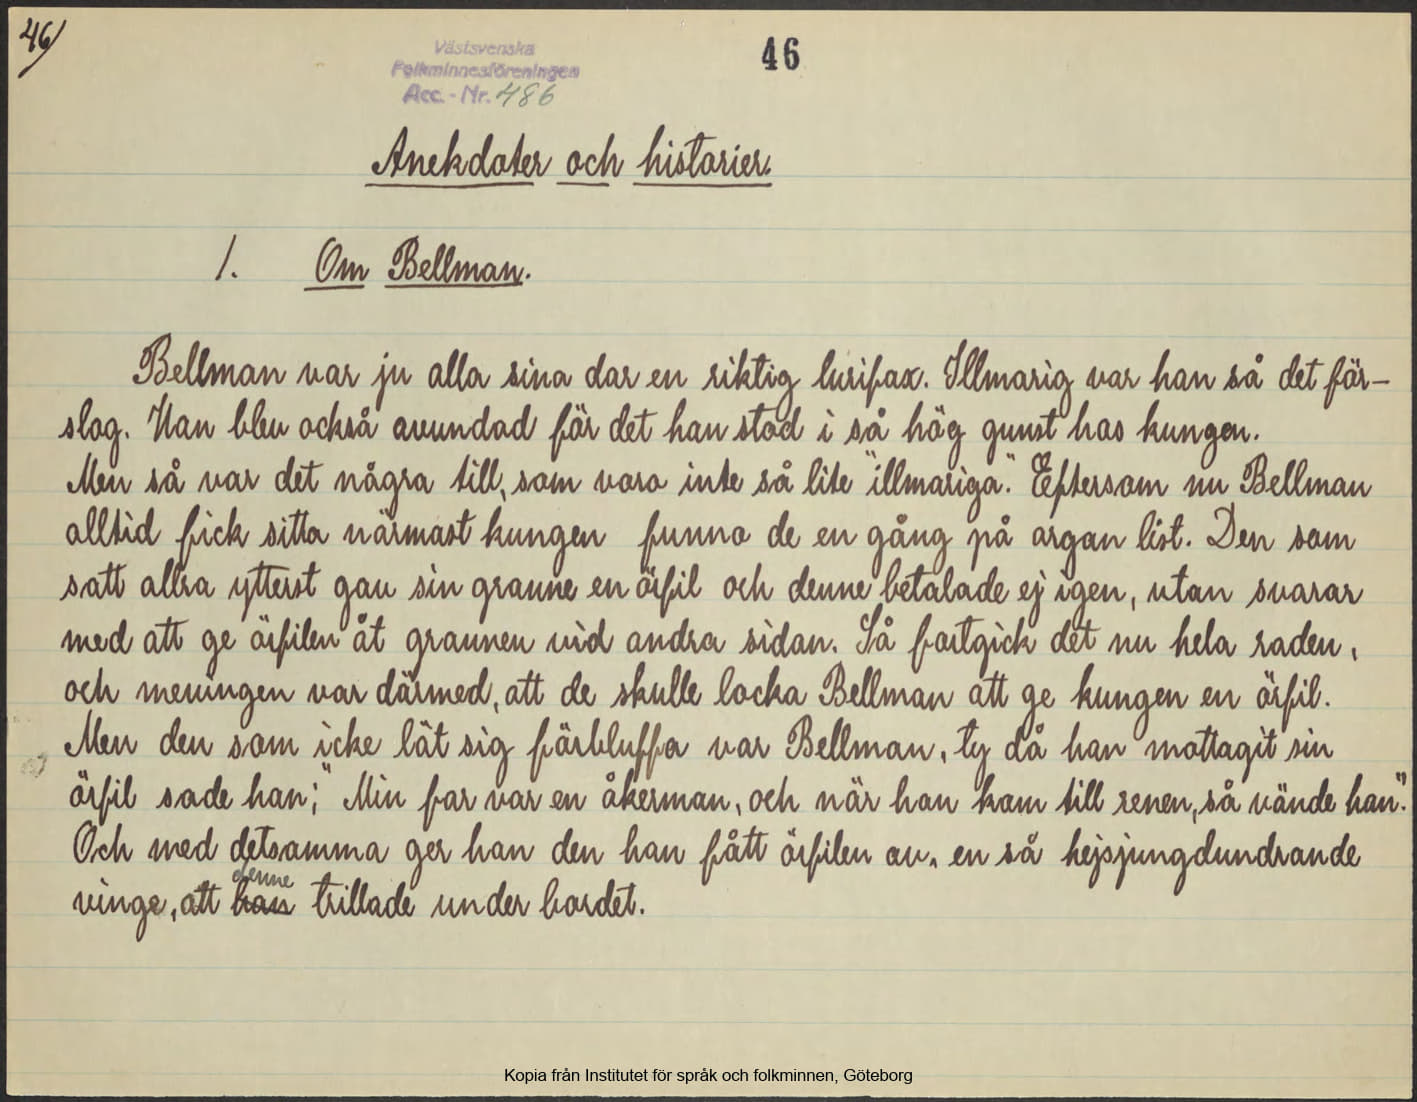 46)
Västsvenska
Folkminnesföreningen
Acc. - Nr. 486
46
Anekdoter och historier.
1. Om Bellman.
Bellman var ju alla sina dar en riktig lurifax. Illmarig var han så det för-
slog. Han blev också avundad för det han stod i så hög gunst hos kungen.
Men så var det några till, som voro inte så lite "illmariga". Eftersom nu Bellman
alltid fick sitta närmast kungen funno de en gång på argan list. Den som
satt allra ytterst gav sin granne en örfil och denne betalade ej igen, utan svarar
med att ge örfilen åt grannen vid andra sidan. Så fortgick det nu hela raden,
och meningen var därmed, att de skulle locka Bellman att ge kungen en örfil.
Men den som icke lät sig förbluffa var Bellman, ty då han mottagit sin
örfil sade han; "Min far var en åkerman, och när han kom till renen, så vände han".
Och med detsamma ger han den han fått örfilen av, en så hejsjungdundrande
denne
vinge, att han trillade under bordet.
Kopia från Institutet för språk och folkminnen, Göteborg